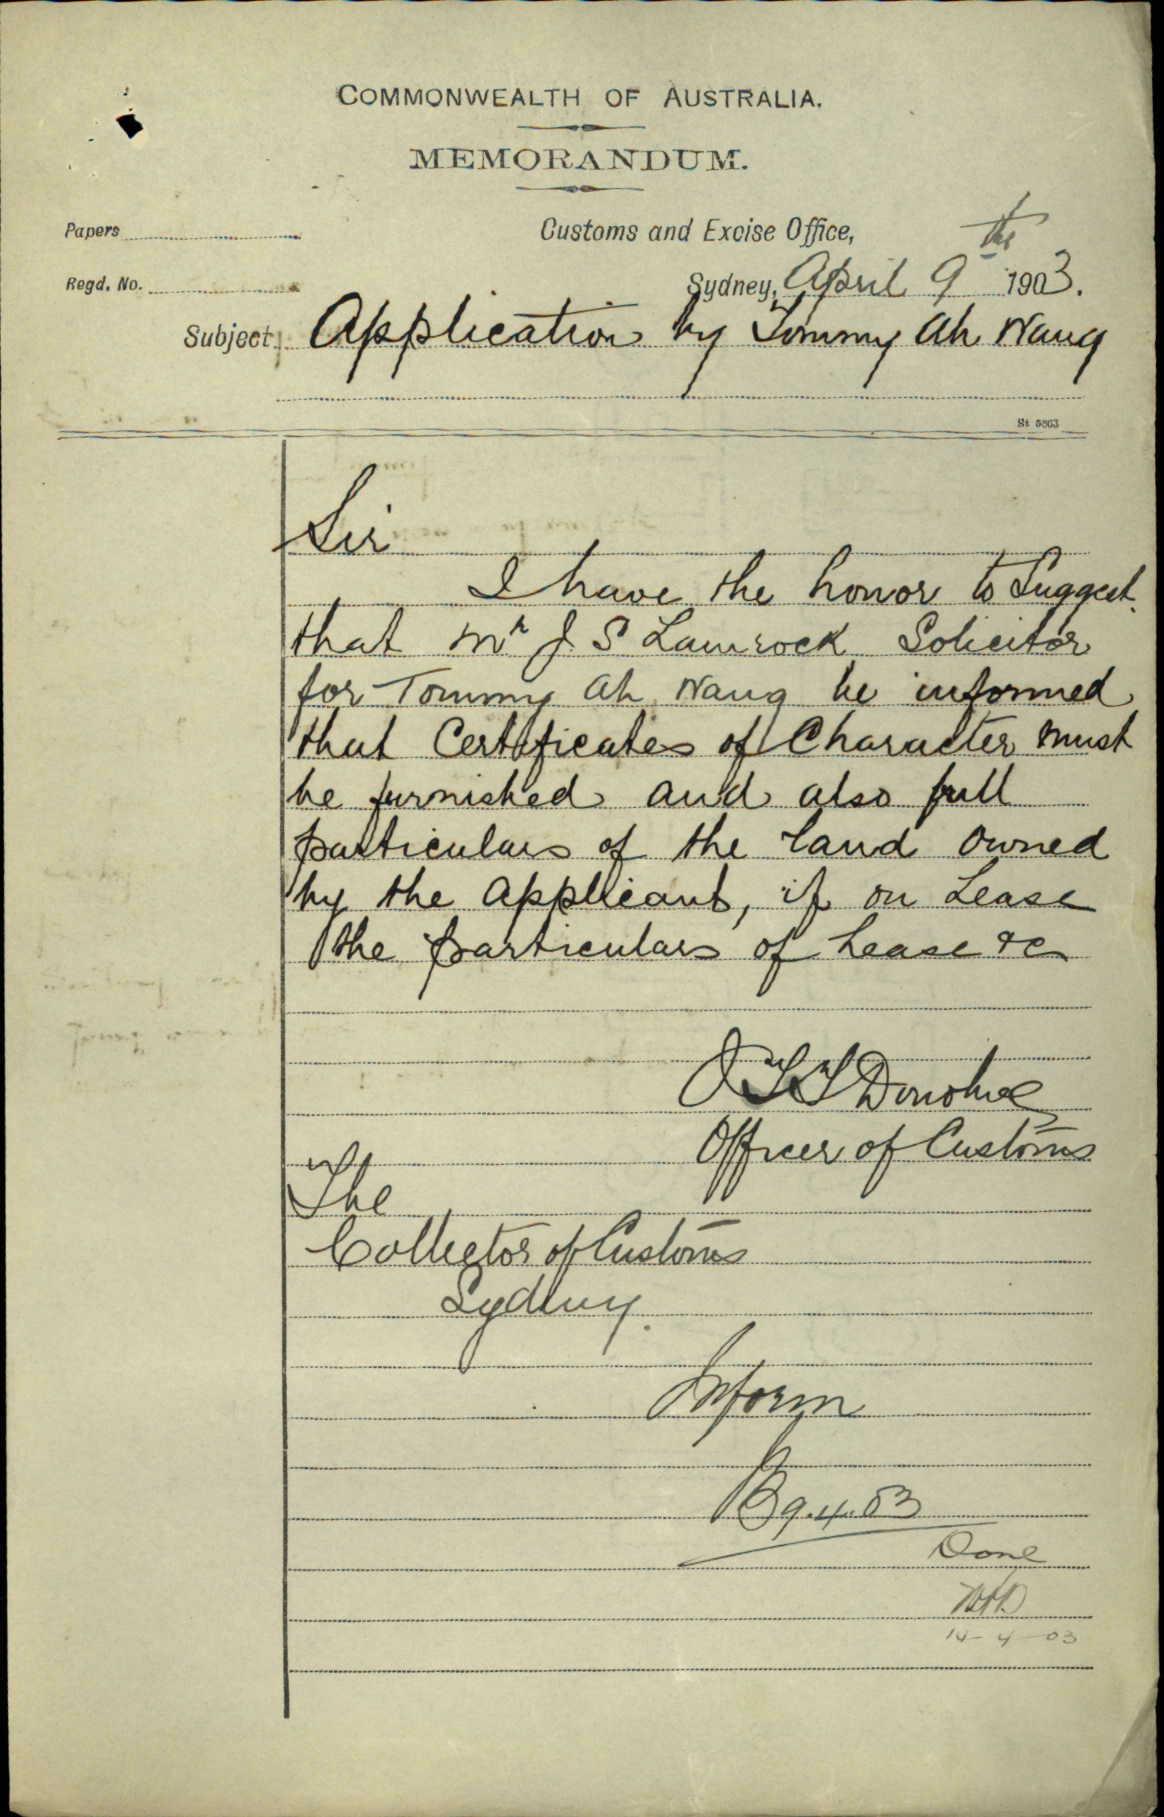 COMMONWEALTH OF AUSTRALIA.
MEMORANDUM.
Papers
Customs and Excise Office,
Regd. No.
Sydney, April 9th 1903.
Subject Application by Tommy Ah Nang
St 5863
Sir
I have the honor to Suggest
that Mr J S Lamrock Solicitor
for Tommy Ah Nang be informed
that Certificates of Character must
be furnished and also full
particulars of the land owned
by the applicant, if on Lease
the particulars of Lease &c
Donohoe
Officer of Customs
The
Collector of Customs
Sydney.
Inform
9.4.03
Done
14-4-03